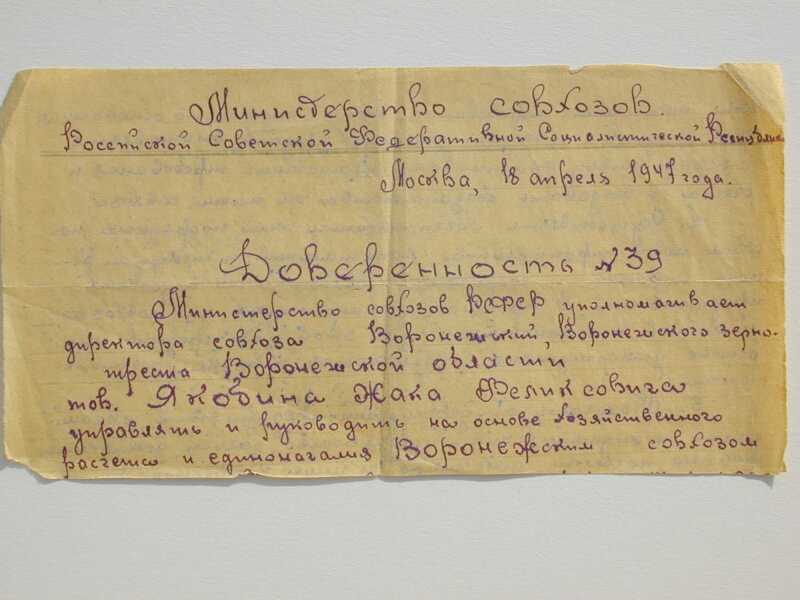 Министерство совхозов.
Российской Советской Федеративной Социалистической Республики
Москва, 18 апреля 1947 года.
Доверенность №39
Министерство совхозов РСФСР уполномачивает
директора совхоза Воронежский, Воронежского зерно-
треста Воронежской области
тов. Якобина Жака Феликсовича
управлять и руководить на основе хозяйственного
расчета и единоначалия Воронежским совхозом